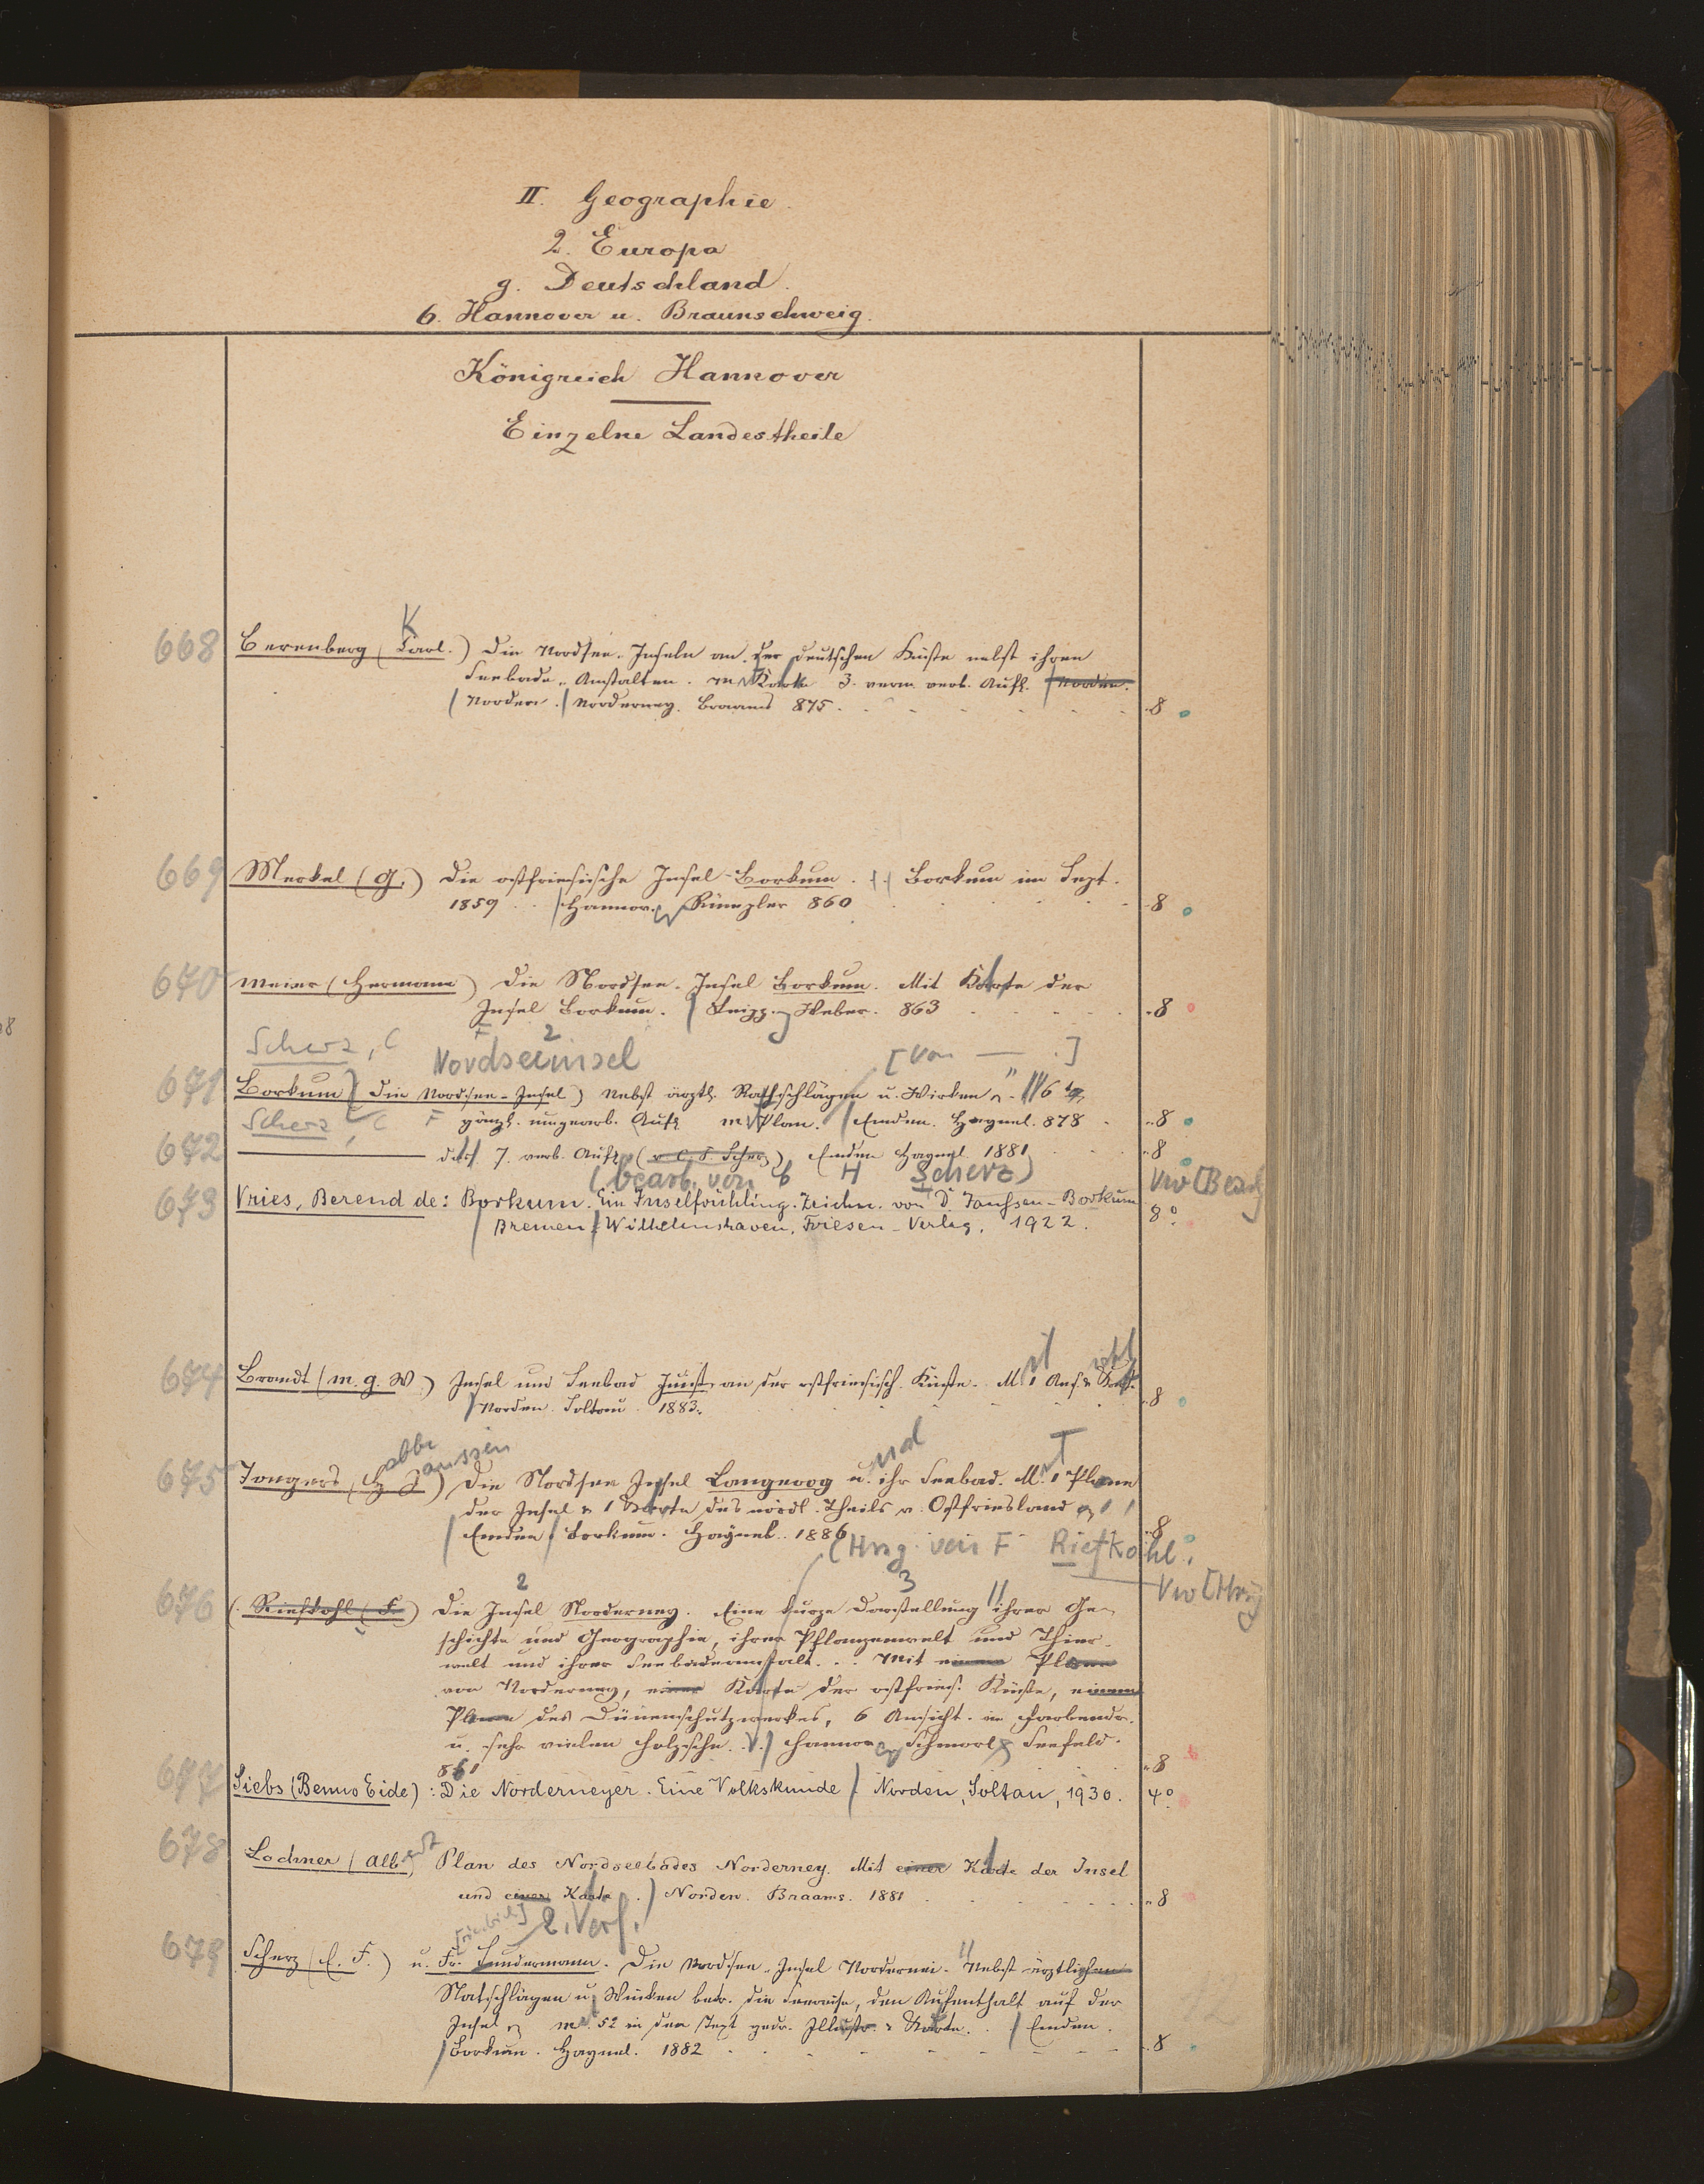 II. Geographie.
2. Europa
g. Deutschland.
6. Hannover u. Braunschweig.
Königreich Hannover
Einzelne Landestheile
K
668 Berenberg (Carl.) Die Nordsee-Inseln an der deutschen Küste nebst ihren
Seebade-Anstalten. m Karte 3. verm. verb. Aufl. Norden.
Norden. Norderney. Braams 875. 8
669 Merkel (G.) Die ostfriesische Insel Borkum. Borkum im Sept.
1859. Hannov. Rümpler 860 8
670 Meier (Hermann) Die Nordsee-Insel Borkum. Mit Karte der
Insel Borkum. Leipz. Weber. 863 8
Scherz, C F 2 Nordseeinsel [von — .]
671 Borkum (Die Nordsee-Insel) Nebst ärztl. Rathschlägen u. Winken 6
gänzl. umgearb. Aufl. m Plan. Emden. Haynel. 878 8
Scherz, C F
672 — 7. verb. Aufl. (v C. F. Scherz) Emden Haynel 1881 8
(bearb. von C H Scherz) Vw [Bearb
673 Vries, Berend de: Borkum. Ein Inselfrühling. Zeichn. von D. Janssen-Borkum
Bremen Wilhelmshaven, Friesen-Verlag, 1922. 8°
674 Brandt (M. G. W.) Insel und Seebad Juist an der ostfriesisch. Küste. M. 1 Ans.
Norden. Soltau. 1883. 8
675 Tongers (H J) Die Nordsee Insel Langeoog u. ihr Seebad. M. 1 Plane
der Insel & 1 Karte des nördl. Theils v. Ostfriesland
Emden Borkum. Haynel. 1886 8
(Hrsg. von F Riefkohl. Vw [Hrsg
676 (Riefkohl (F.) Die Insel Norderney. Eine kurze Darstellung ihrer Ge-
schichte und Geographie, ihrer Pflanzenwelt und Thier-
welt und ihrer Seebadeanstalt... Mit einem Plane
von Norderney, einer Karte der ostfries. Küste, einem
Plane des Dünenschutzwerkes, 6 Ansicht. in Farbendr.
u. sehr vielen Holzschn. Hannov Schmorl & Seefeld.
861 8
677 Siebs (Benno Eide): Die Norderneyer. Eine Volkskunde. Norden, Soltau, 1930. 4°
678 Lochner (Albert) Plan des Nordseebades Norderney. Mit einer Karte der Insel
und einer Karte.) Norden. Braams. 1881 8
2. Verf.
679 Scherz (C. F.) u. Fr. Sundermann. Die Nordsee-Insel Nordernei. Nebst ärztlichen
Ratschlägen u. Winken betr. die Seereise, den Aufenthalt auf der
Insel m. 52 in den Text gedr. Illustr. & Karte. Emden.
Borkum. Haynel. 1882 8